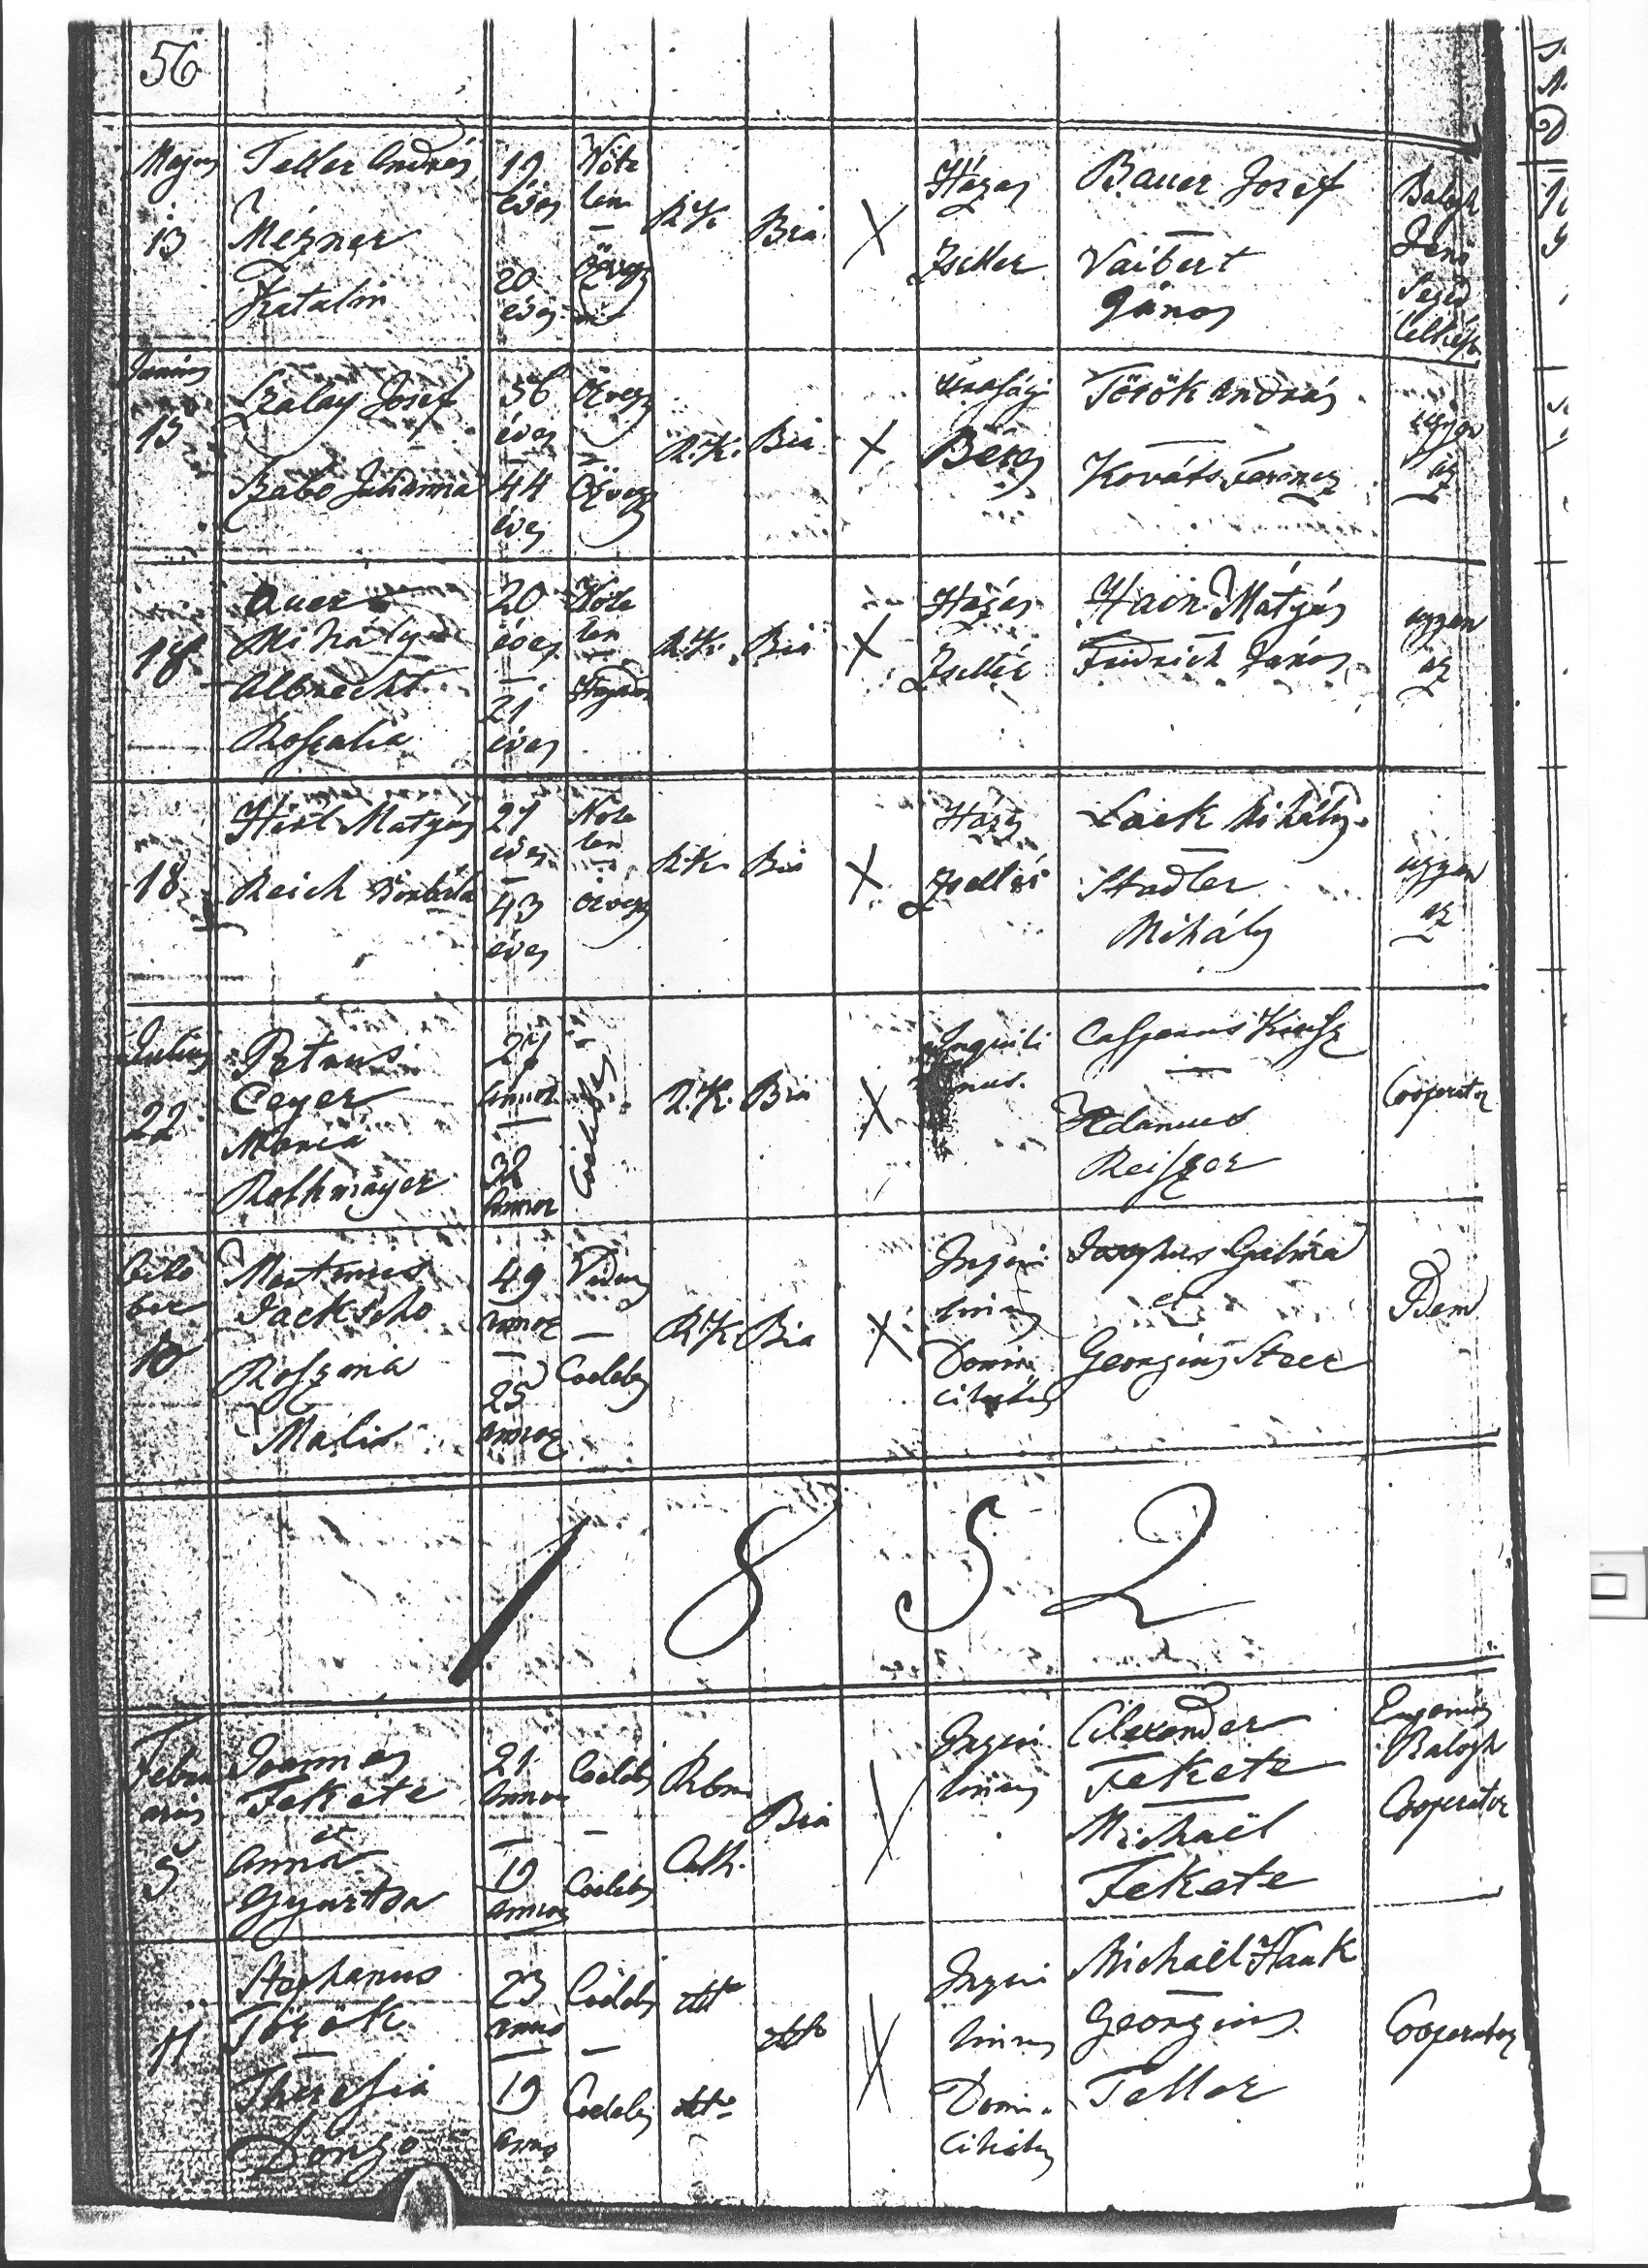 56
Majus
13
Teller András
Mézner
Katalin
19
éves
20
éves
Nőte
len
—
Özvegy
R.K.
Bia
X
Házas
Zseller
Bauer Josef
—
Vaibert
János
Balogh
Jenő
Segéd
lelkész
Junius
13
Szalay Josef
Szabó Julianna
56
éves
—
44
éves
Özvegy
—
Özvegy
R.K.
Bia
X
Béres
Török András
—
Kováts Ferencz
ugyan
az
18
Auer
Mihály
Albrecht
Roszalia
20
éves
—
21
éves
Nőte
len
—
Hajadon
R.K.
Bia
X
Házas
Zsellér
Hain Mátyás
—
Fridrich János
ugyan
az
18
Hirl Matyás
Reich Borbála
21
éves
—
43
éves
Nőte
len
—
özvegy
R.K.
Bia
X
Házas
zsellér
Lack Mihály
—
Stadler
Mihály
ugyan
az
Julius
22
Petrus
Ceyer
Maria
Rothmayer
27
annor
—
32
annor
Coelebs
R.K.
Bia
X
Inquili
nus.
Casparus Kirsz
—
Adamus
Reiszer
Cooperator
Octo
ber
10
Martinus
Jackscho
Roszina
Malis
49
annor
—
25
annor
Viduus
—
Coelebs
R.K.
Bia
X
Inqui
linus
Domi
ciliatus
Josephus Galina
et
Georgius Steer
Idem
1852
Febru
arius
5
Joannes
Fekete
et
Anna
Gyurtsa
21
annor
—
19
annor
Coelebs
—
Coelebs
Rom
Cath.
Bia
X
Inqui
linus
Alexander
Fekete
—
Michaël
Fekete
Eugenius
Balogh
Cooperator
11
Stephanus
Török
—
Theresia
Dongo
23
anno
—
19
anno
Coelebs
—
Coelebs
dtto
dtto
dtto
X
Inqui
linus
Domi
ciliatus
Michaël Hauk
—
Georgius
Teller
Cooperator